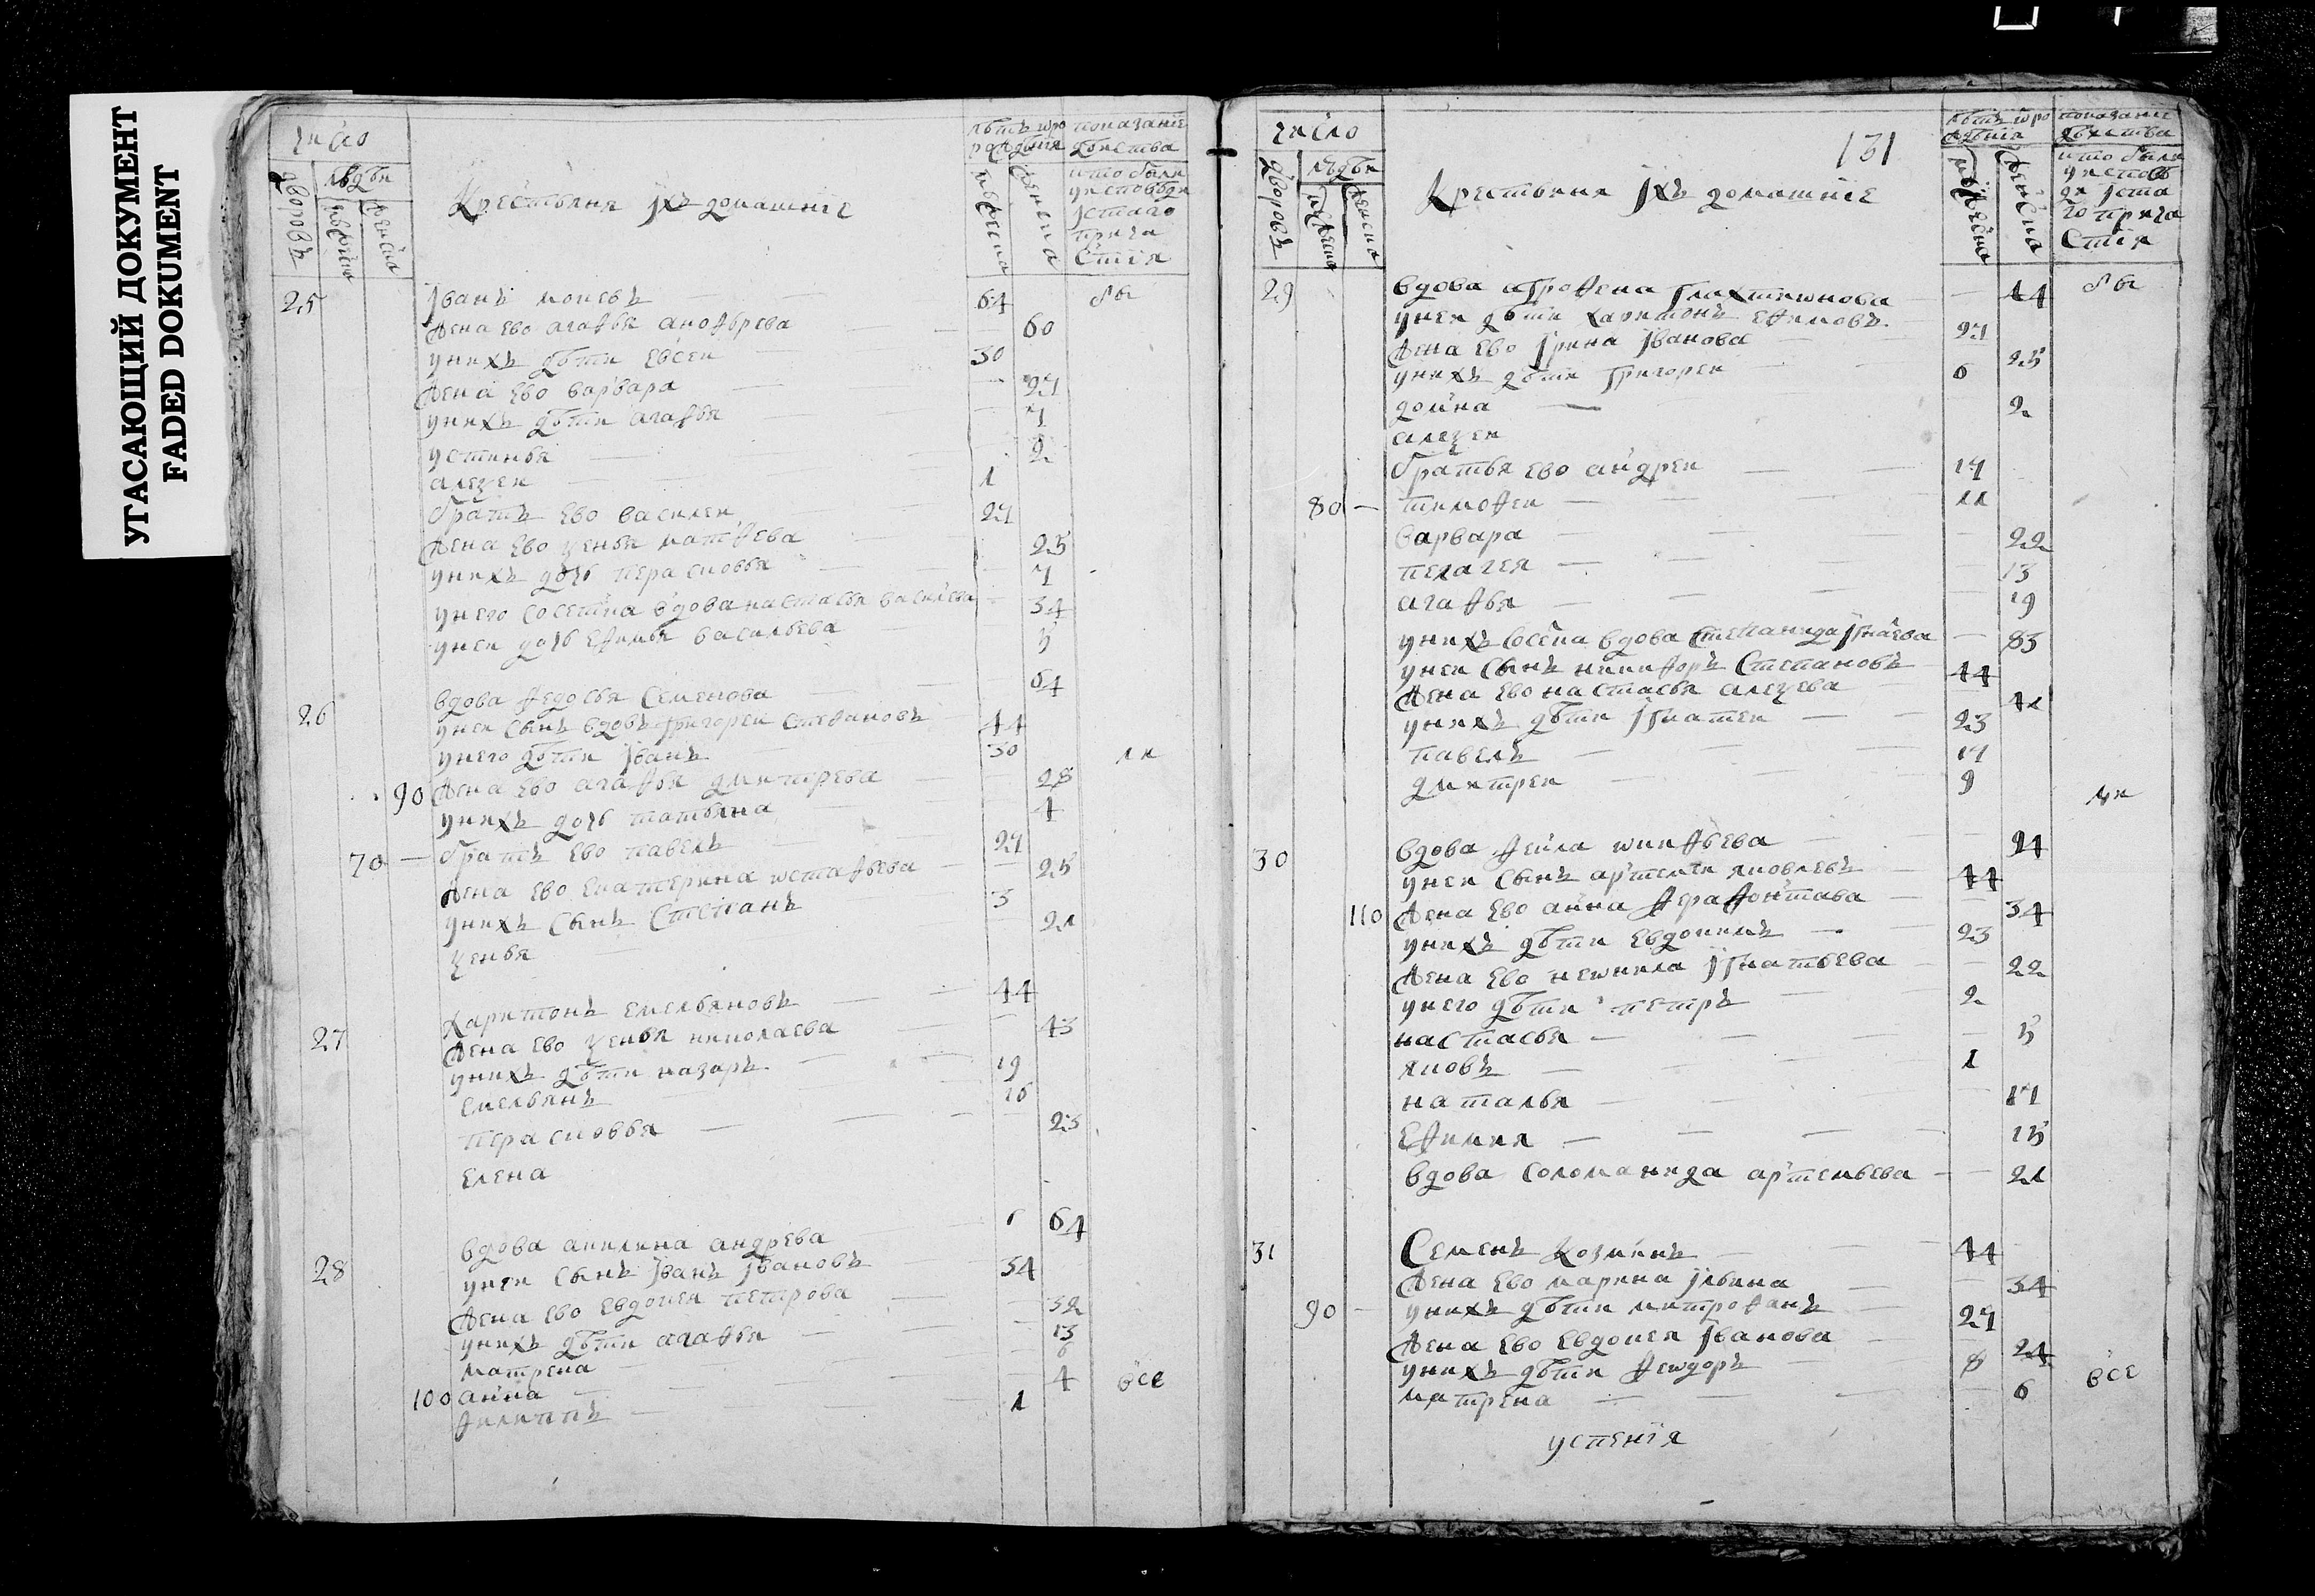 УГАСАЮЩИЙ ДОКУМЕНТ
FADED DOKUMENT
число
дворовъ
людеи
мужеска
женска
Крестьяня ихъ домашніе
лѣтъ ѿро
жденія
мужеска
женска
показаніе
дѣиства
кто былъ
у исповѣди
и стаго
прича
стія
25 іванъ моисѣ 64 бы
жена ево агафья аноѳрева 60
у нихъ дѣти евсеи 30
жена ево варвара 27
у нихъ дѣти агафья 7
устинья 2
алеѯеи 1
братъ ево василеи 27
жена ево ѯенья матфева 25
у нихъ дочь парасковья 7
у него соседка вдова настасья василева 34
у неи дочь ефимья васильева 5
26 вдова федосья семенова 64
у неи сынъ вдовъ григореи стефановъ 44
у него дѣти іванъ 30
90 жена ево агафья дмитрева 28
у нихъ дочь татьяна 4
70 — братъ ево павелъ 27
жена ево екатерина ѡстафьева 25
у нихъ сынъ степанъ 3
ѯенья 21
27 харитонъ емельяновъ 44
жена ево ѯенья николаева 43
у нихъ дѣти назаръ 19
емельянъ 16
парасковья 23
елена
28 вдова акилина андрева 64
у неи сынъ іванъ івановъ 34
жена ево евдокея петрова 32
у нихъ дѣти агафья 13
матрена 6
100 анна 4 все
филиппъ 1
число
дворовъ
людеи
мужеска
женска
131
Крестьяня ихъ домашніе
лѣтъ ѿро
жденія
мужеска
женска
показаніе
дѣиства
кто былъ
у исповѣ
ди и ста
го прича
стія
29 вдова агрофена 44 бы
у неи дѣти харитонъ ефимовъ 27
жена ево ірина іванова 25
у нихъ дѣти григореи 6
домна 2
алеѯеи
братья ево андреи 17
80 — тимофеи 11
варвара 22
пелагея 13
агафья 19
у нихъ вдова степанида 83
у неи сынъ никифоръ степановъ 44
жена ево настасья алеѯева 41
у нихъ дѣти ігнатеи 23
павелъ 17
дмитреи 9
30 вдова фекла 94
у неи сынъ артемеи яковлевъ 44
110 жена ево анна 34
у нихъ дѣти евдокимъ 23
жена ево неѡнила ігнатьева 22
у него дѣти петръ 2
настасья 5
яковъ 1
наталья 17
ефимия 15
вдова соломанида артемьева 21
31 Семенъ козминъ 44
жена ево марина ильина 34
90 — у нихъ дѣти митрофанъ 27
жена ево евдокея іванова 24
у нихъ дѣти феѡдоръ 8
матрена 6 все
успенія